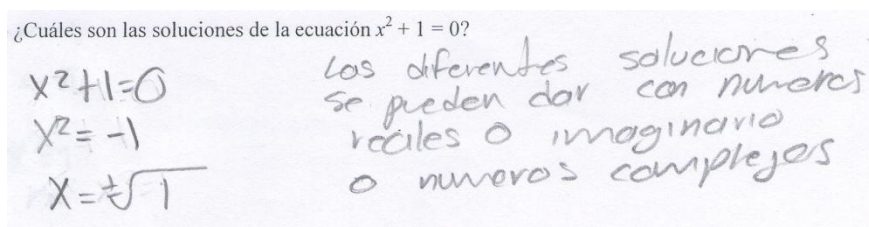 ¿Cuáles son las soluciones de la ecuación x² + 1 = 0?
x²+1=0
x² = -1
x = ±√1
Las diferentes soluciones
se pueden dar con numeros
reales o imaginario
o numeros complejos